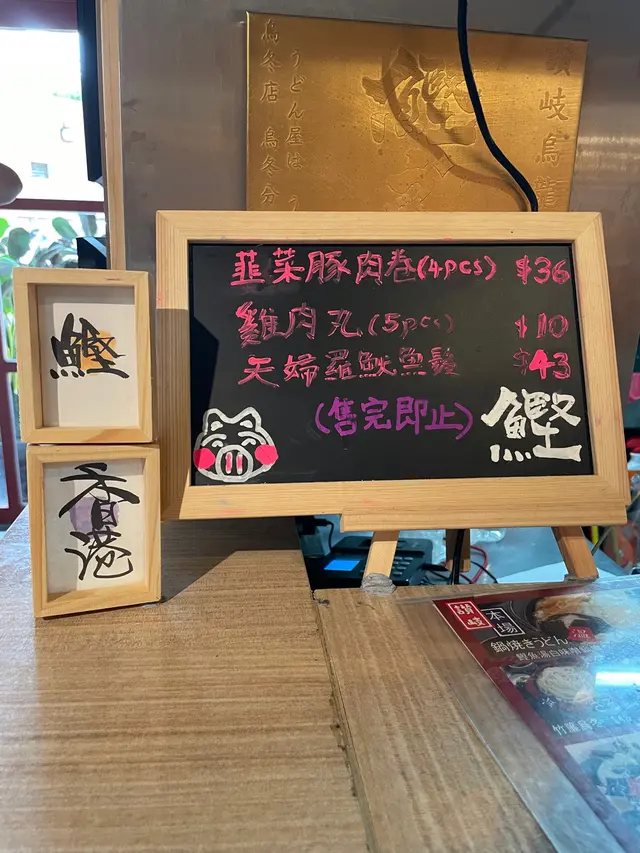 讃岐烏龍
うどん屋は う
烏冬店 烏冬分
鰹
韮菜豚肉卷(4pcs) $36
雞肉丸(5pcs) $10
天婦羅魷魚鬚 $43
(售完即止)
鰹
鰹
香港
讃岐
本場
鍋焼きうどん
鰹魚湯白味